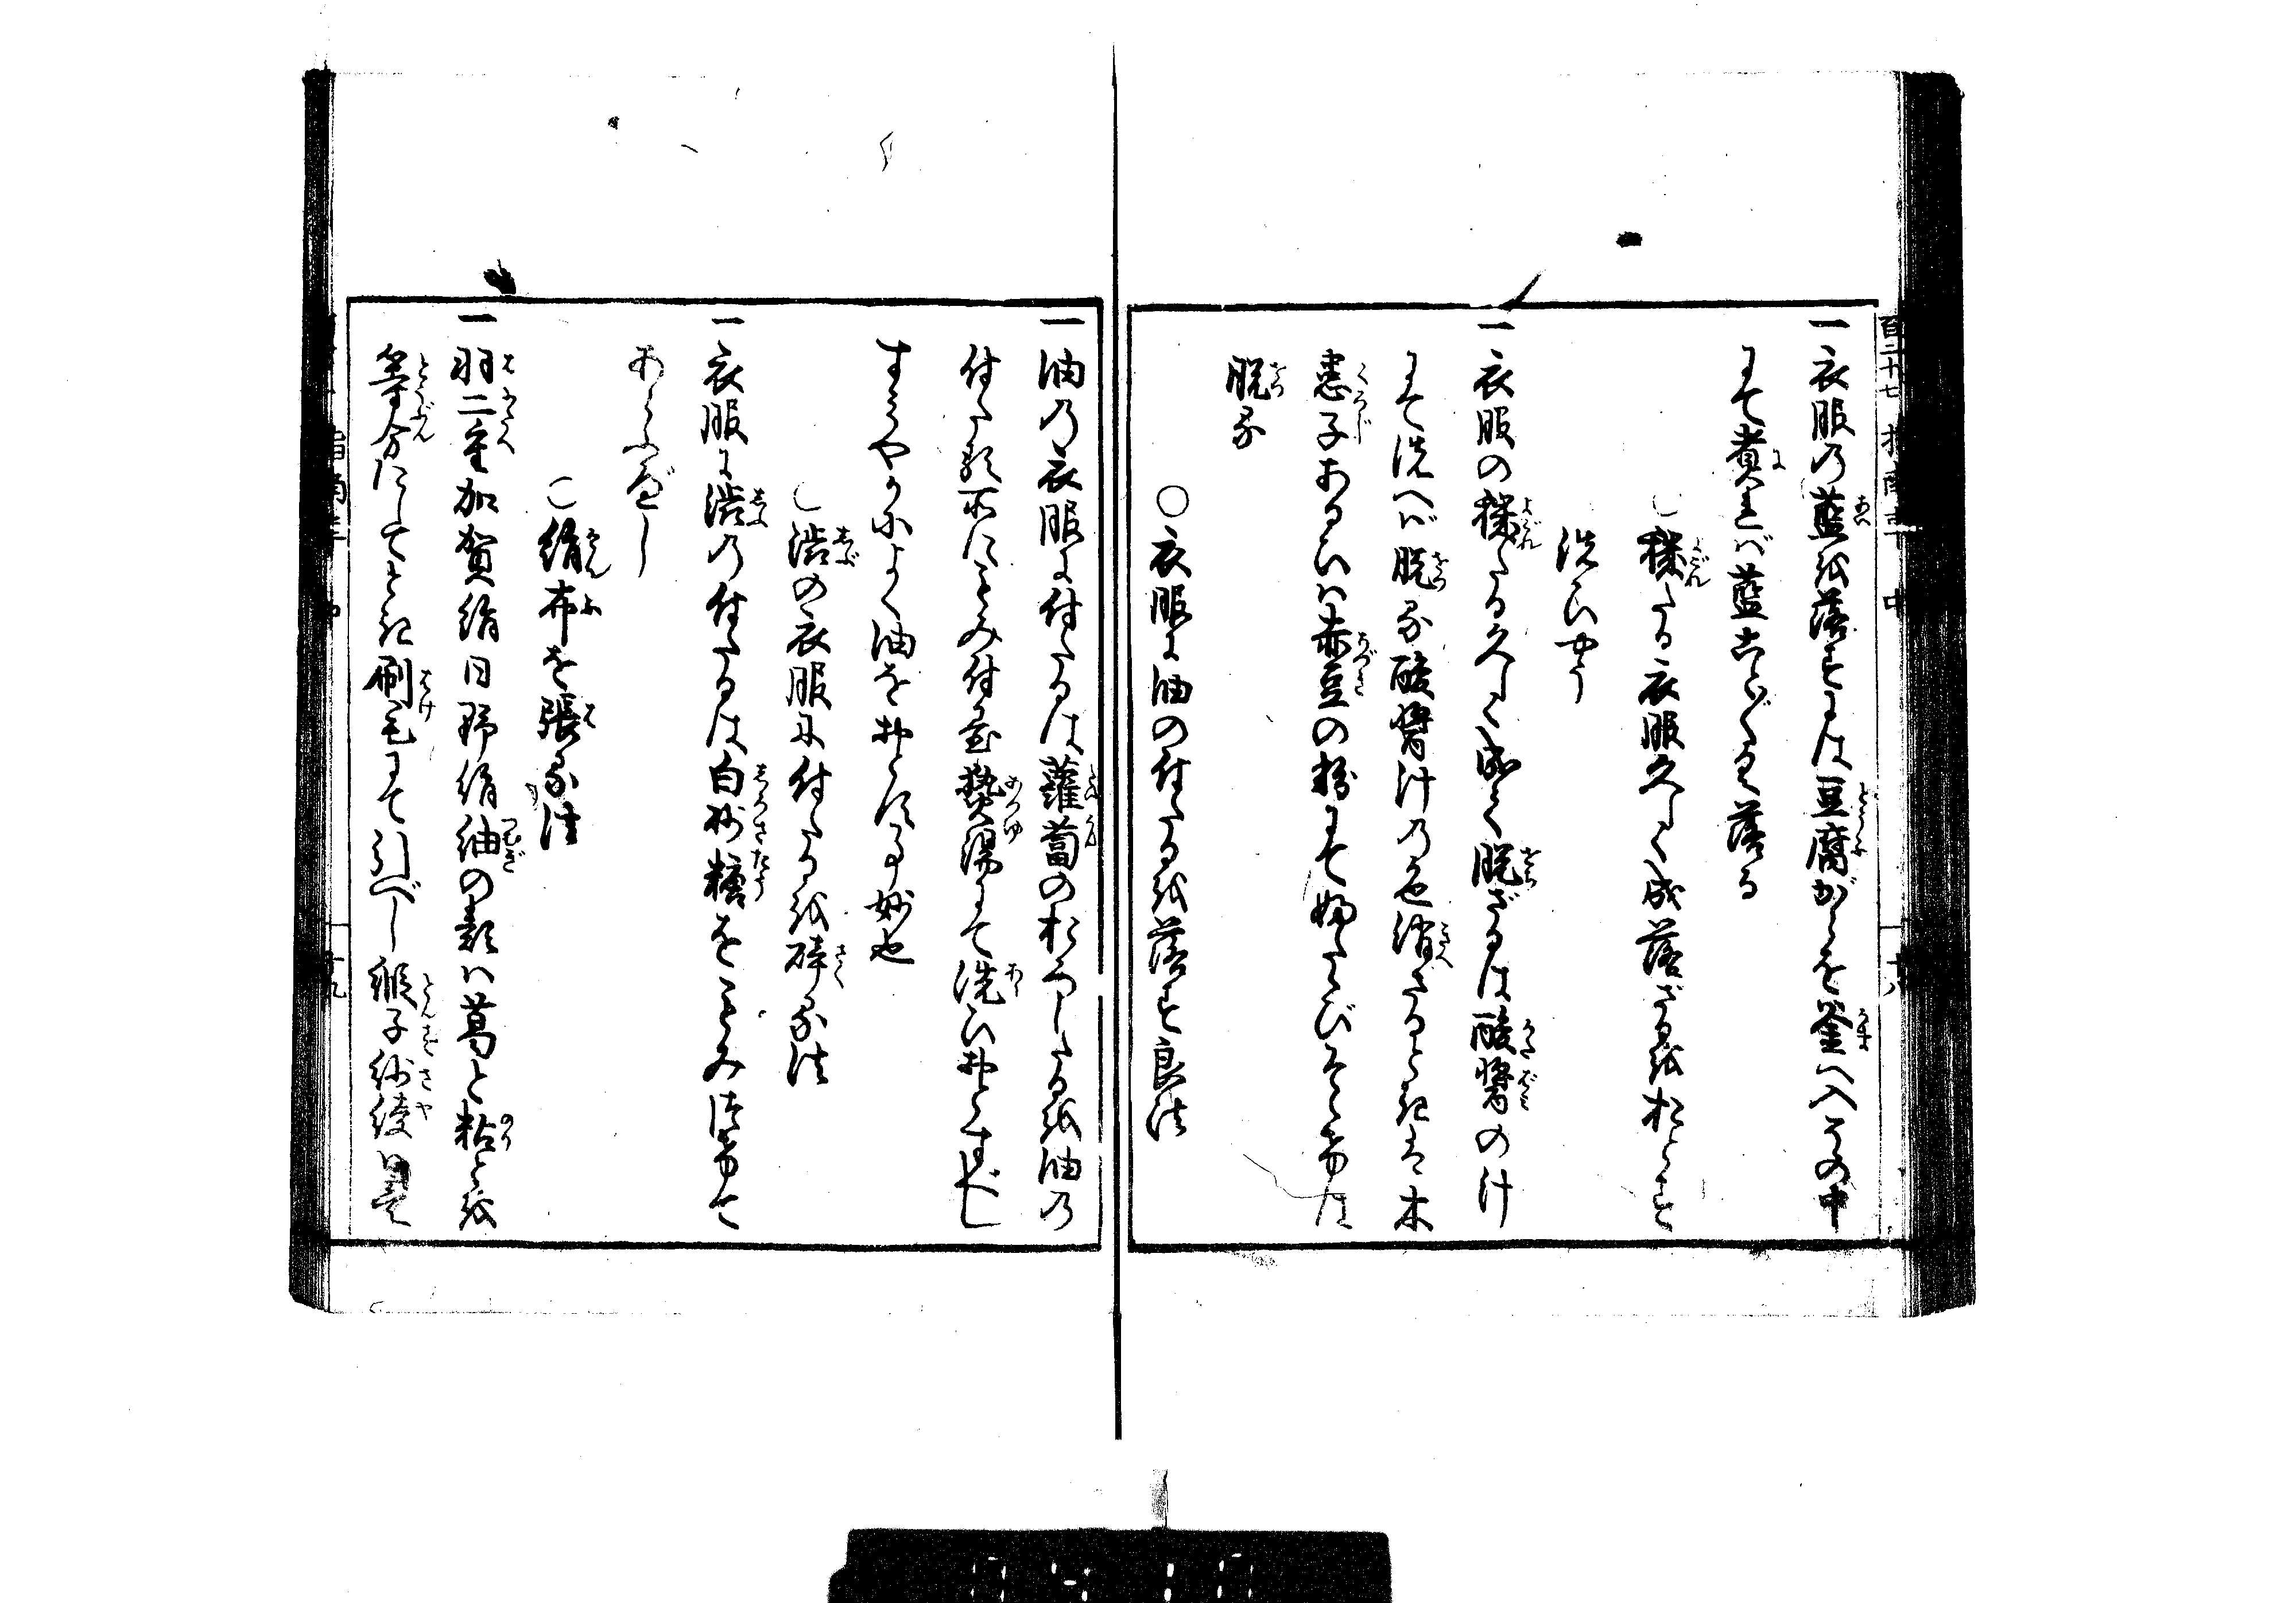 一衣服の藍を落すには豆腐がらを釜へ入その中
にて煮れば藍ことごとく落る
○穢たる衣服久しく成落ざるを おとす
洗ひやう
一衣服の穢たる久しく成て脱ざるは酸醤の汁
にて洗へば脱る酸醤汁の色消ざるときは木
患子あるひは赤豆の粉にて
脱る
○衣服に油の付たるを落す良法
一油の衣服に付たるは蘿蔔のおろしたるを油の
付たる所にもみ付 熱湯にて洗ひおとすべし
すみやかによく油をおとす事妙也
○渋の衣服に付たるを砕る法
一衣服に渋の付たるは白砂糖をもみつけて
あらふべし
○絹布を張る法
一羽二重加賀絹日野絹紬の類は葛と粘とを
等分にしてとき刷毛にて引べし 緞子紗綾